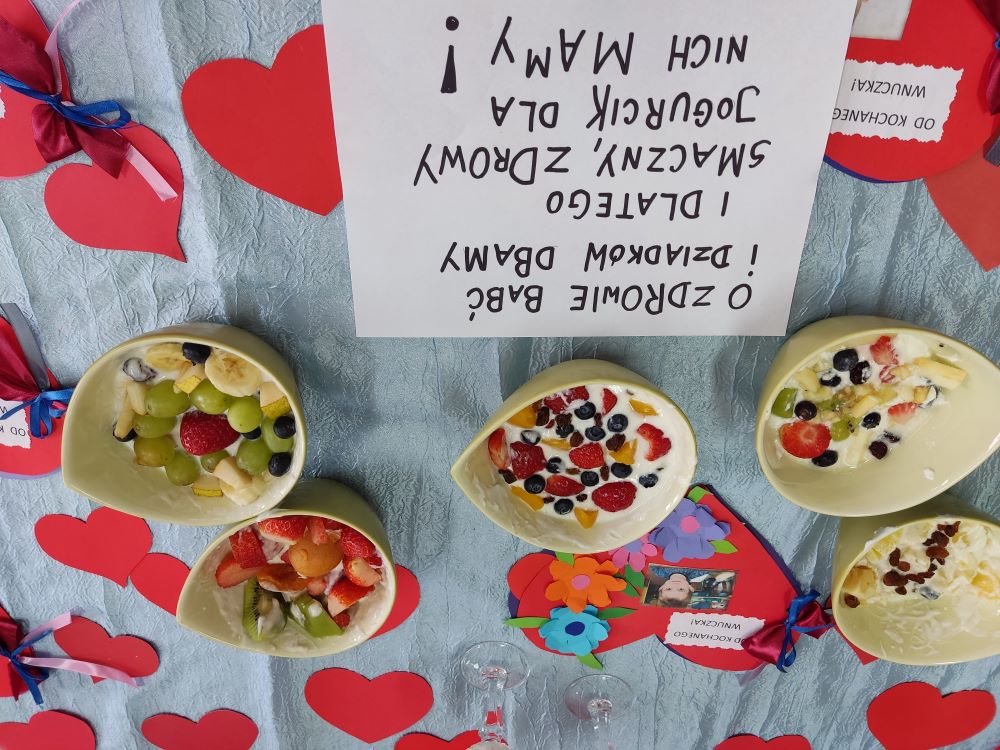 O ZDROWIE BABĆ
i DZIADKÓW DBAMY
I DLATEGO
SMACZNY, ZDROWY
JOGURCIK DLA
NICH MAMY!
OD KOCHANEGO
WNUCZKA!
OD KOCHANEG
WNUCZKA!
OD K